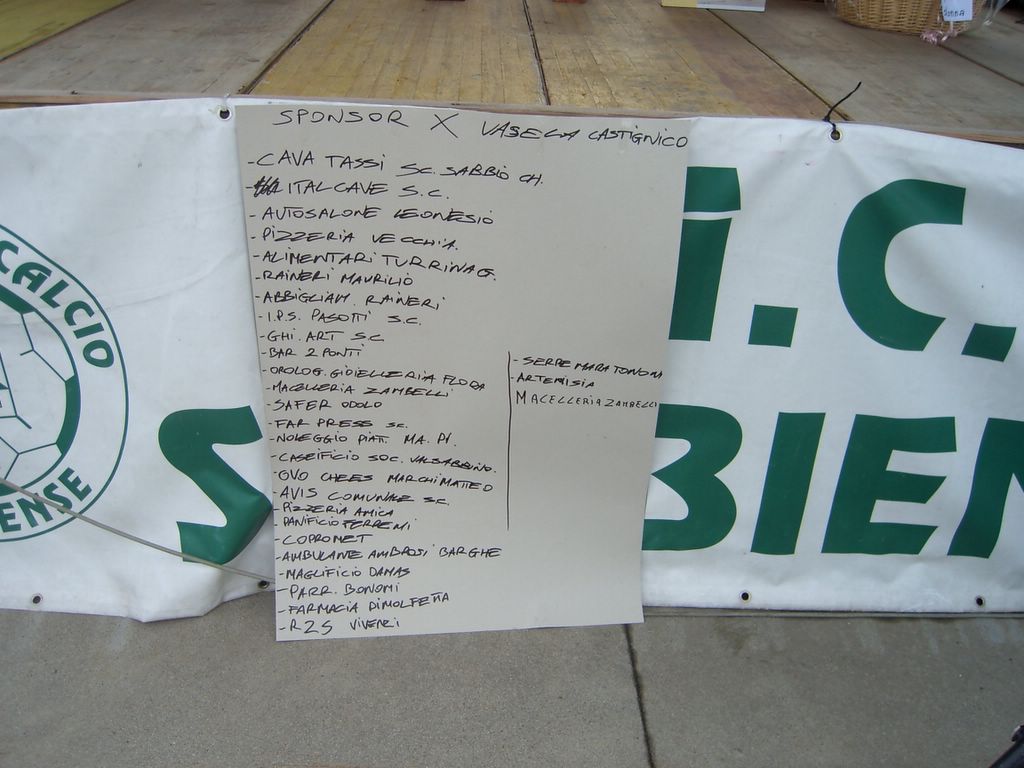 SPONSOR X VASECA CASTIGNICO
-CAVA TASSI SC. SABBIO CH.
-ITALCAVE S.C.
-AUTOSALONE LEONESIO
-PIZZERIA VECCHIA.
-ALIMENTARI TURRINA G.
-RAINERI MAURILIO
-ABBIGLIAM. RAINERI
-I.P.S. PASOTTI S.C.
-GHI. ART S.C
-BAR 2 PONTI
-OROLOG. GIOIELLERIA FLODA
-MACELLERIA ZAMBELLI
-SAFER ODOLO
-FAR PRESE SC.
-NOLEGGIO PIATT. MA. PI.
-CASEIFICIO SOC. VALSABBINO.
-OVO CHEES MARCHI MATTEO
-AVIS COMUNALE S.C.
-PIZZERIA AMICA
-PANIFICIO FERREMI
-COPROMET
-AMBULANTE AMBROSI BARGHE
-MAGLIFICIO DAMAS
-PARR. BONOMI
-FARMACIA DIMOLFETTA
-R2S VIVENZI
-SERRE MARA TONONI
-ARTEMISIA
MACELLERIA ZAMBELLI
CALCIO
ENSE
I.C.
S BIEN